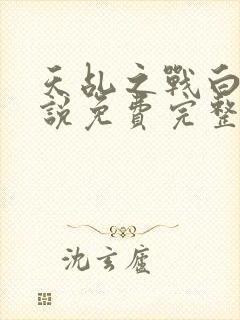 天乱之戰白
說免費完整
沈玄廬